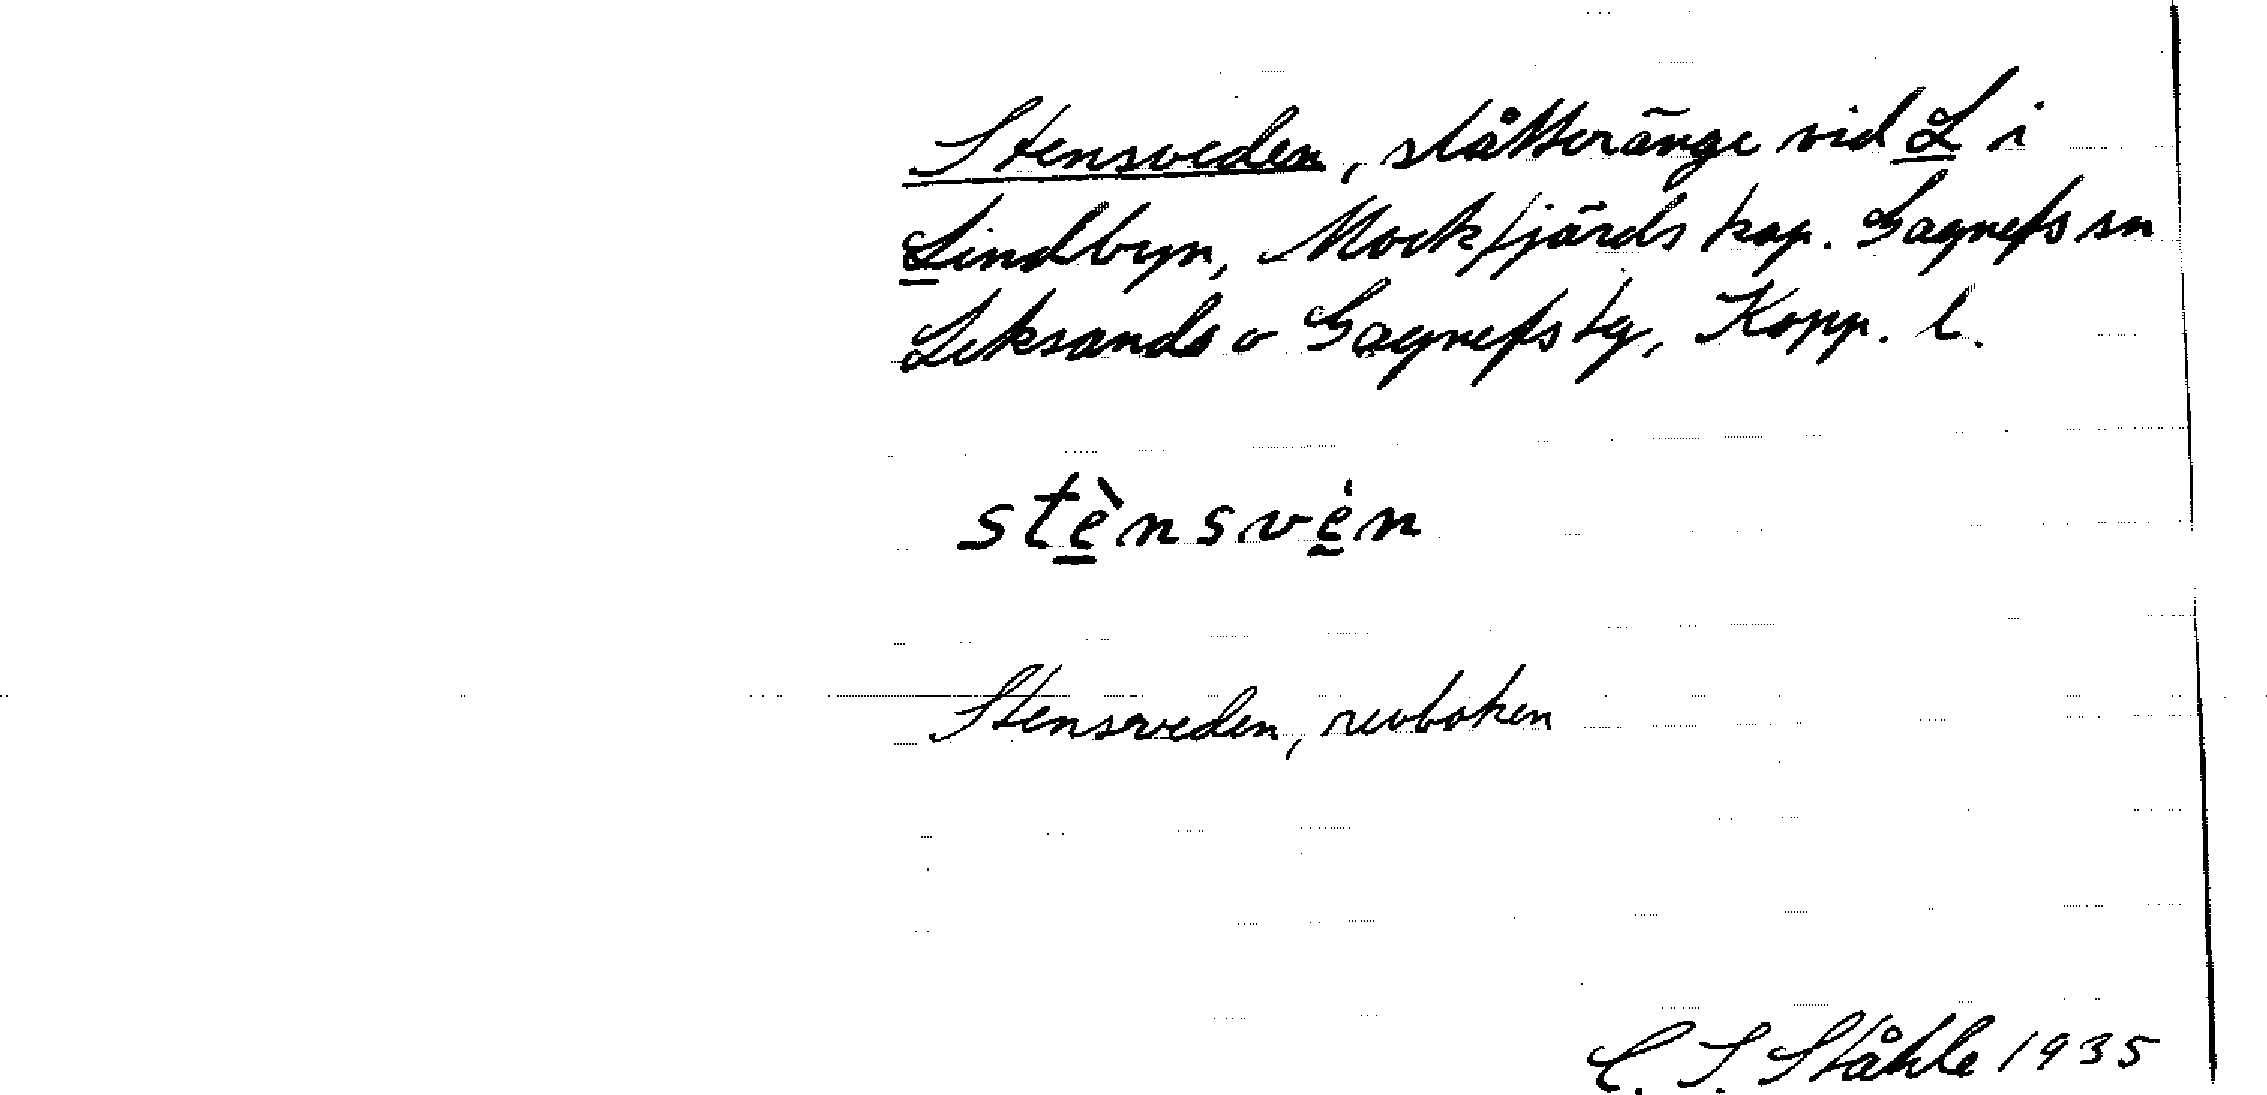 Stensveden, slåtteränge vid L i
Lindbyn, Mockfjärds kap. Gagnefs sn
Leksands o Gagnefs tg, Kopp. l.
stènsvèn
Stensveden, revboken
C. I. Ståhle 1935